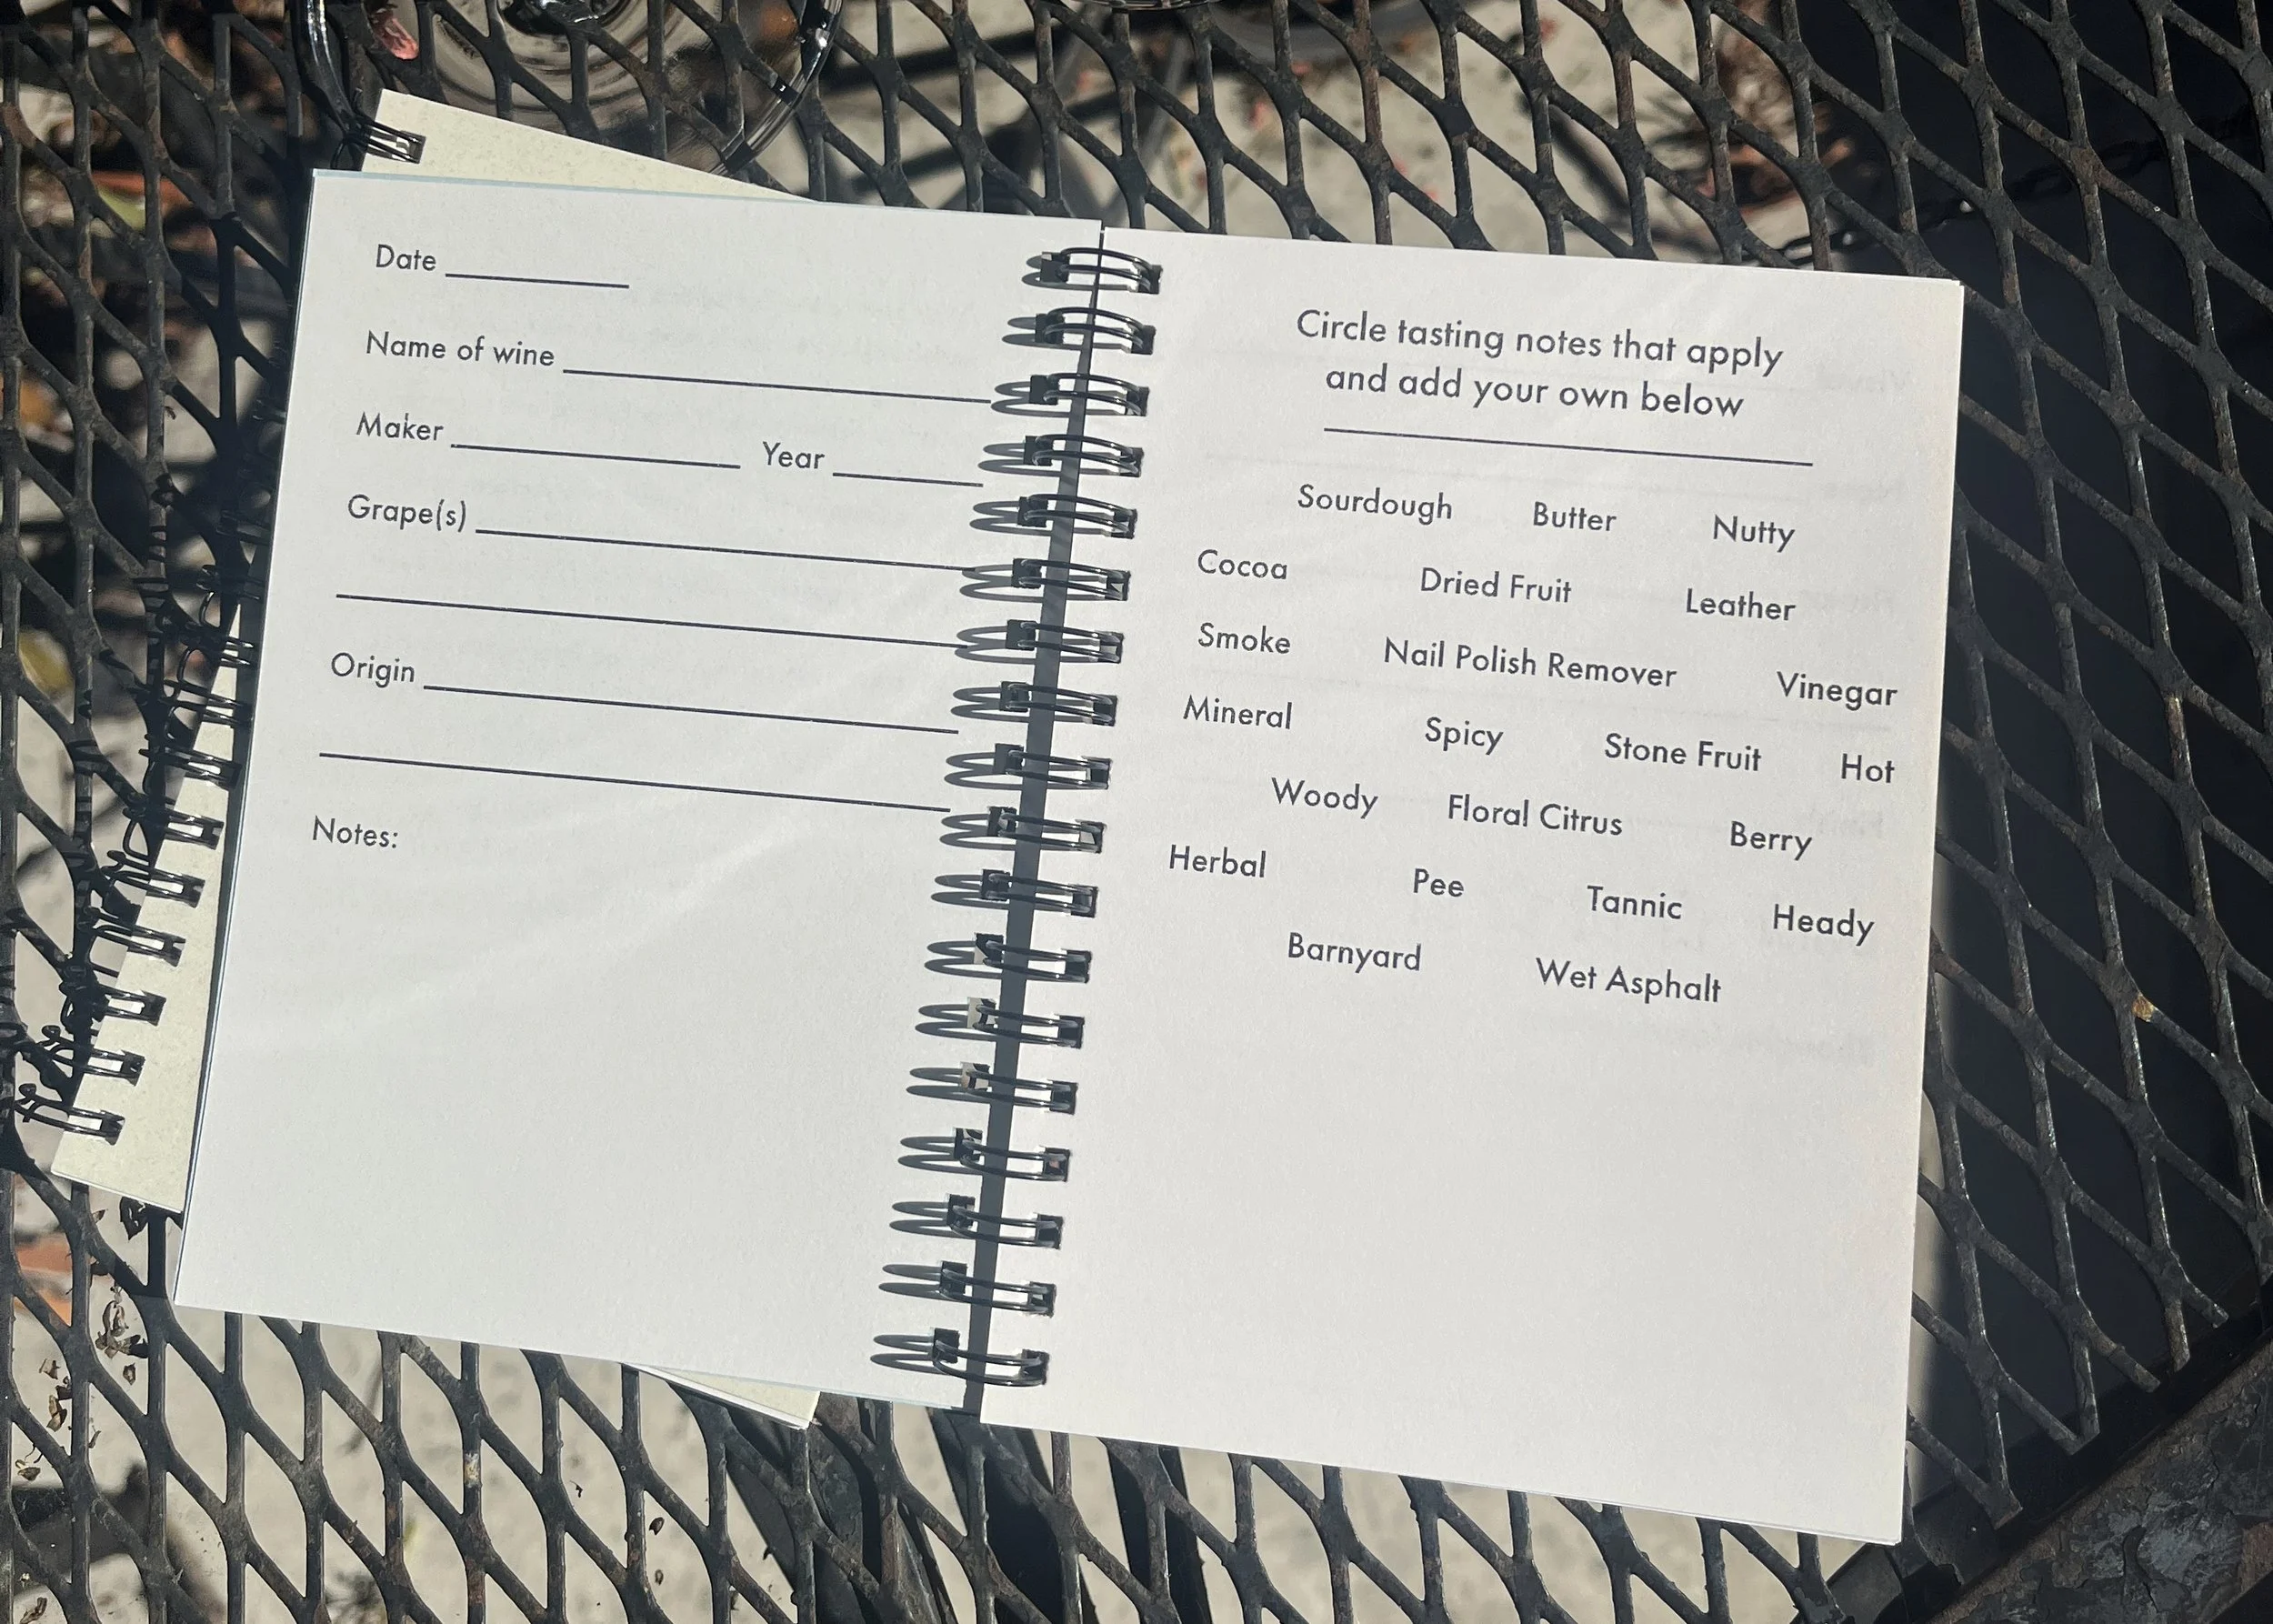 Date
Name of wine
Maker Year
Grape(s)
Origin
Notes:
Circle tasting notes that apply
and add your own below
Sourdough Butter Nutty
Cocoa Dried Fruit Leather
Smoke Nail Polish Remover Vinegar
Mineral Spicy Stone Fruit Hot
Woody Floral Citrus Berry
Herbal Pee Tannic Heady
Barnyard Wet Asphalt